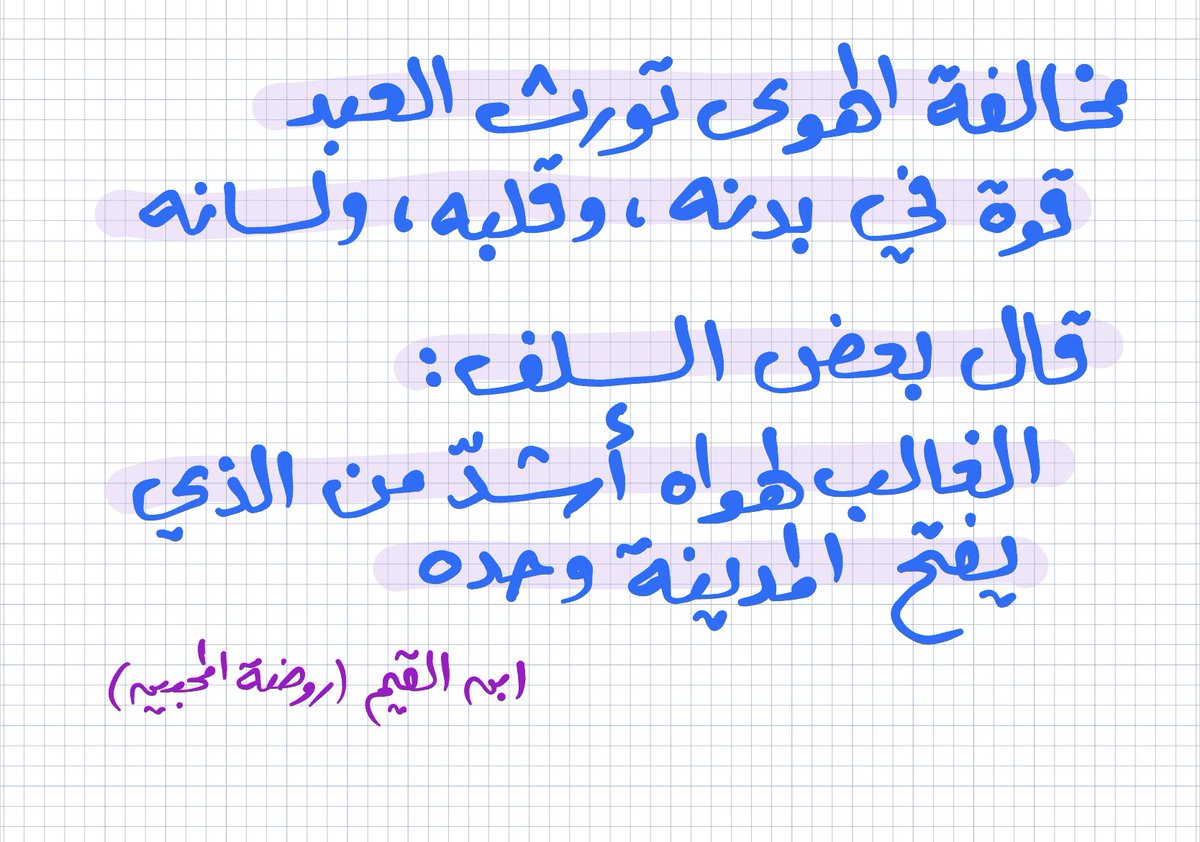 مخالفة الهوى تورث العبد
قوة في بدنه، وقلبه، ولسانه
قال بعض السلف:
الغالب لهواه أشدّ من الذي
يفتح المدينة وحده
ابن القيم (روضة المحبين)